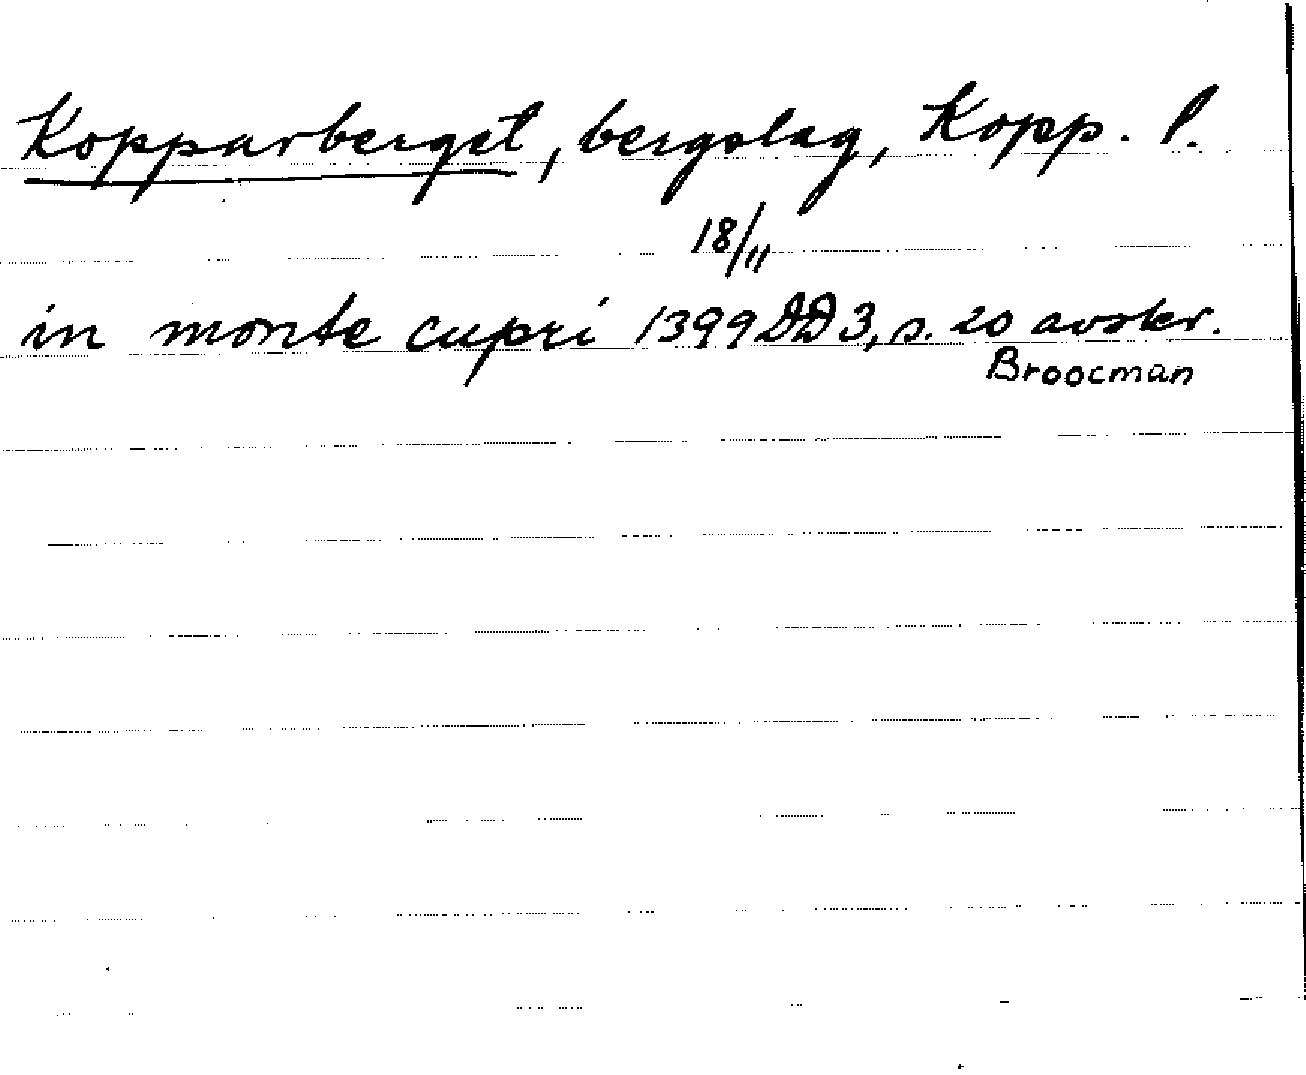 Kopparberget, bergslag, Kopp. l.
18/11
in monte cupri 1399 DD 3, s. 20 avskr.
Broocman